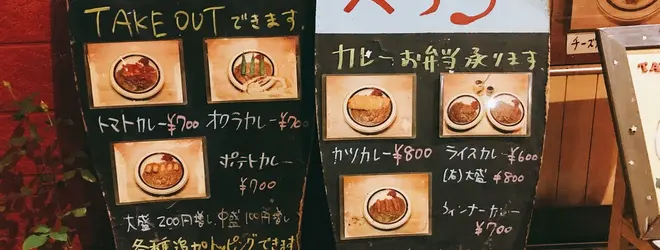 TAKE OUTできます。
トマトカレー¥700
オクラカレー¥700
ポテトカレー
¥700
大盛200円増し、中盛100円増し
各種追加トッピングできます
カレーお弁当承ります。
カツカレー¥800
ライスカレー¥600
(大)大盛¥800
ウィンナーカレー
¥700
チーズ